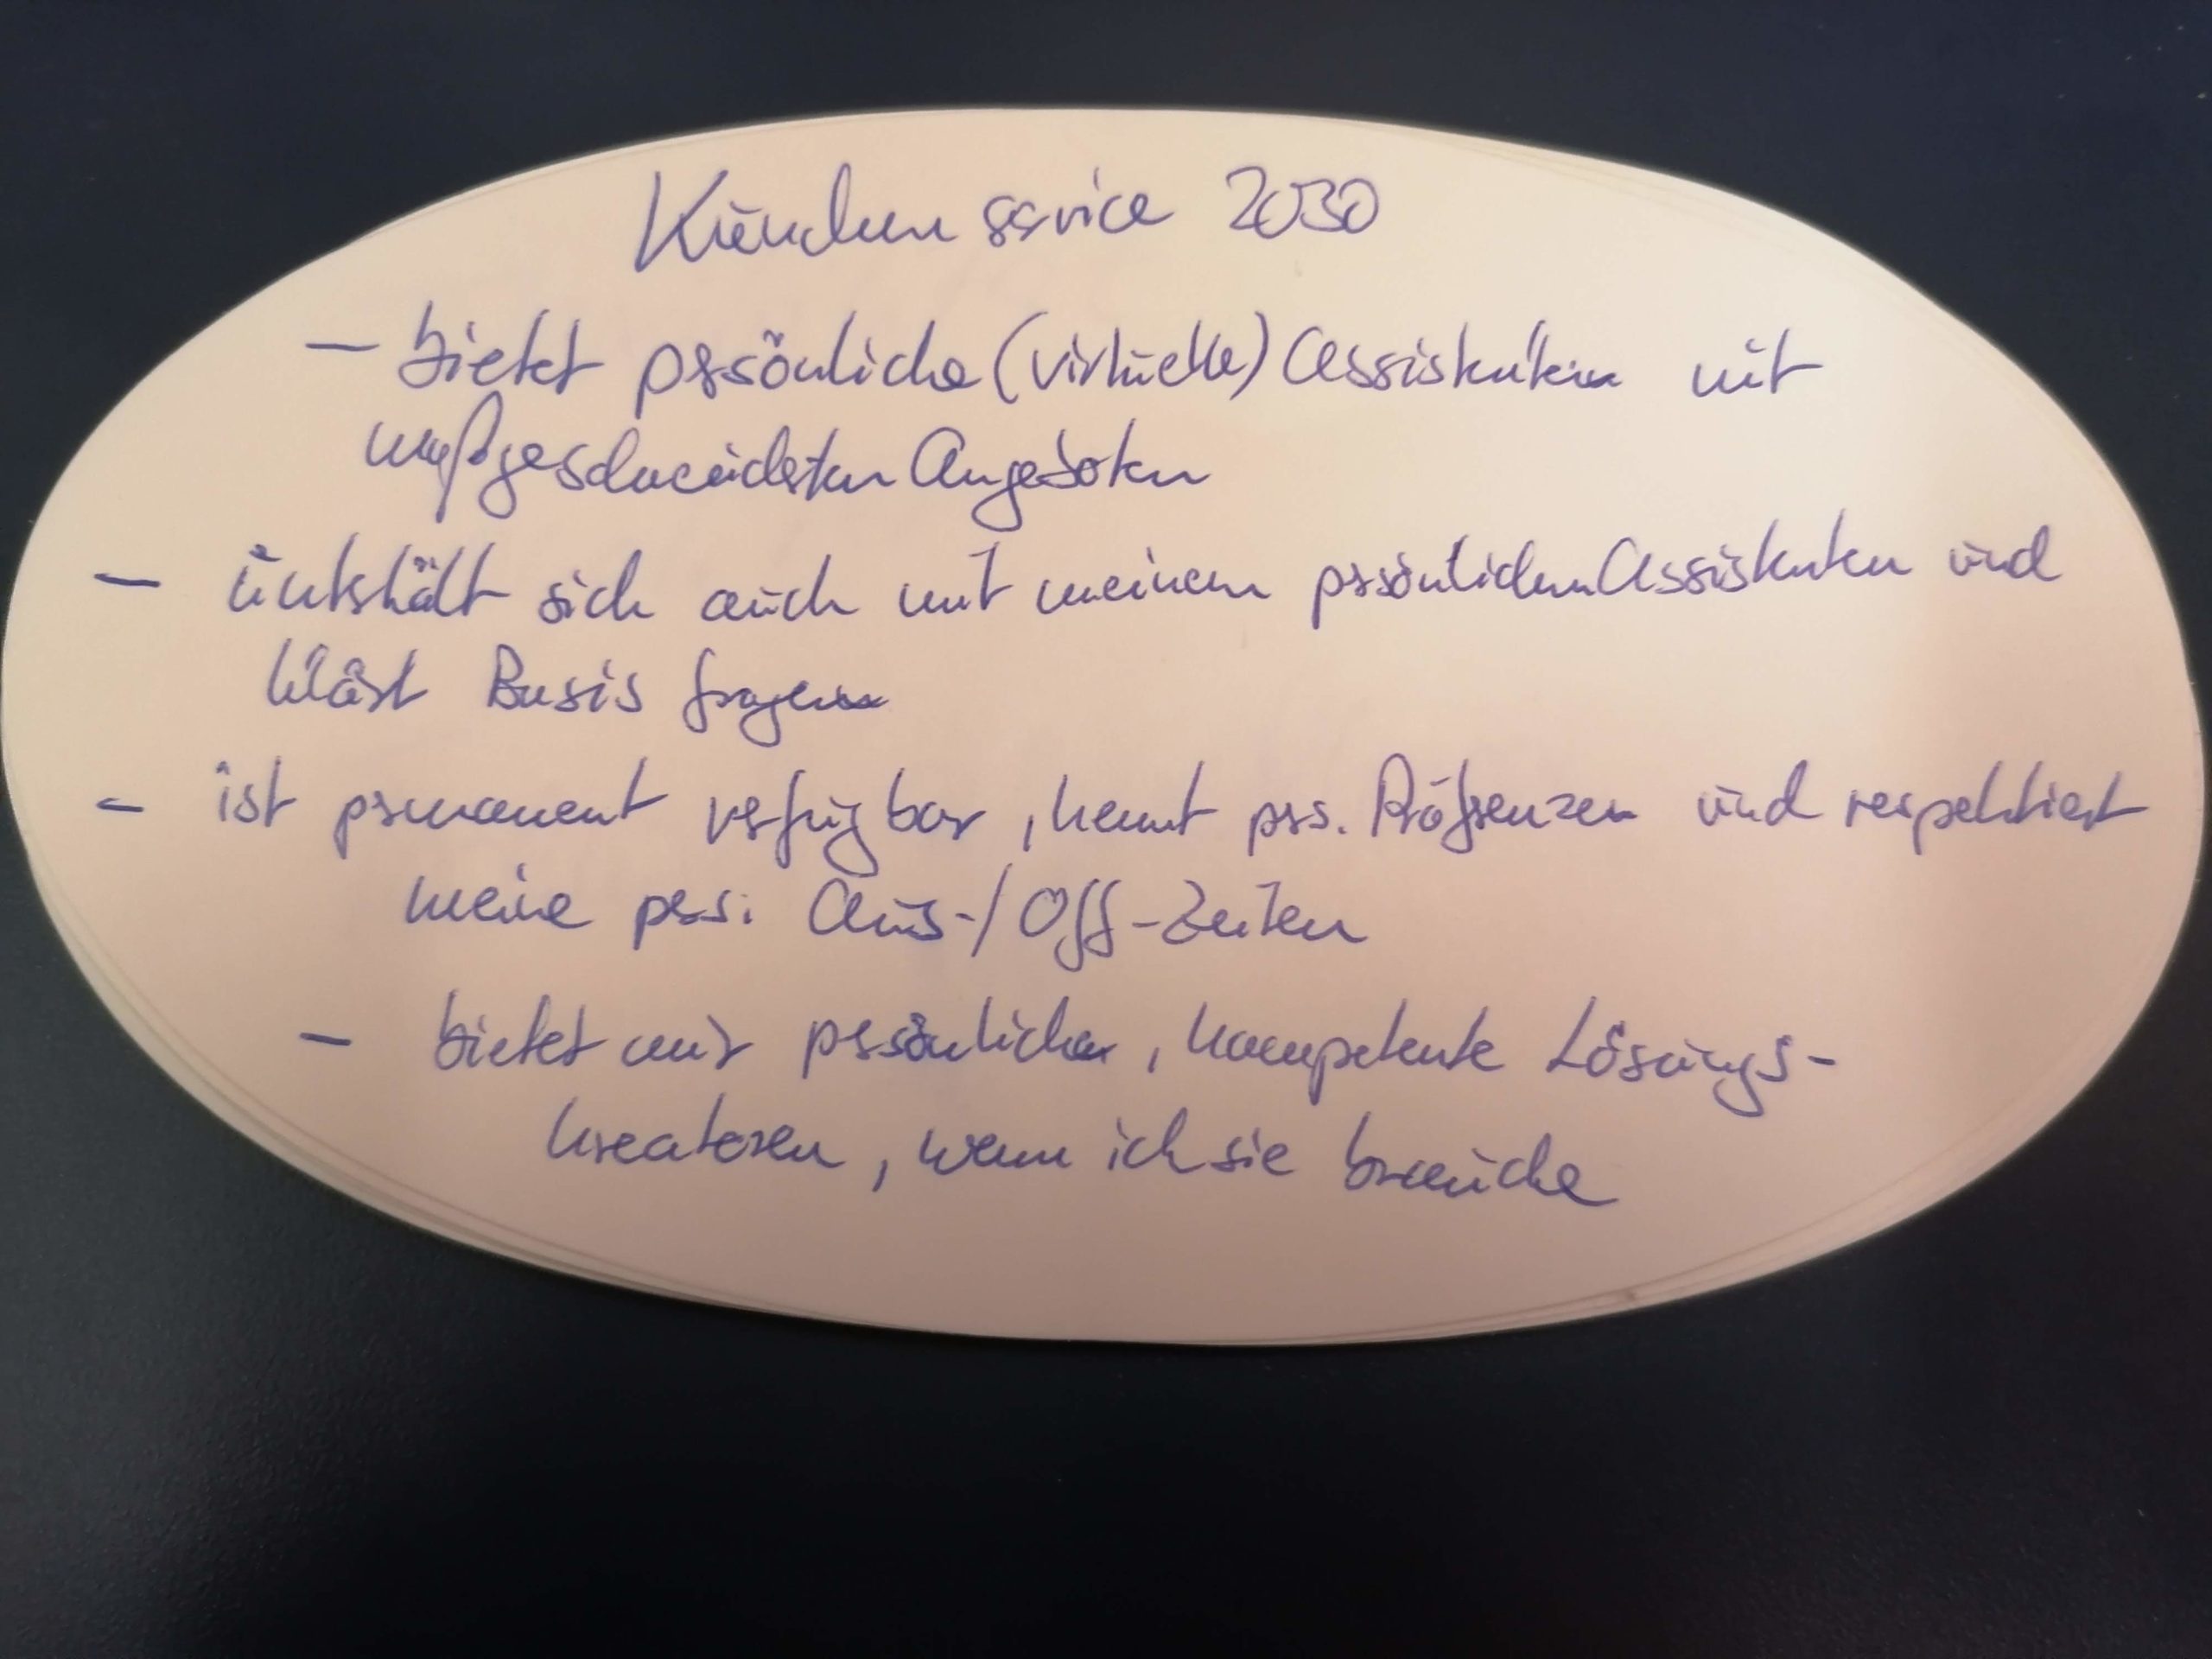 Kundenservice 2030
- bietet persönliche (virtuelle) Assistenten mit
maßgeschneiderten Angeboten
- unterhält sich auch mit meinem persönlichen Assistenten und
klärt Basisfragen
- ist permanent verfügbar, kennt pers. Präferenzen und respektiert
meine pers. Aus-/Off-Zeiten
- bietet mir persönliche, kompetente Lösungs-
kreatoren, wenn ich sie brauche